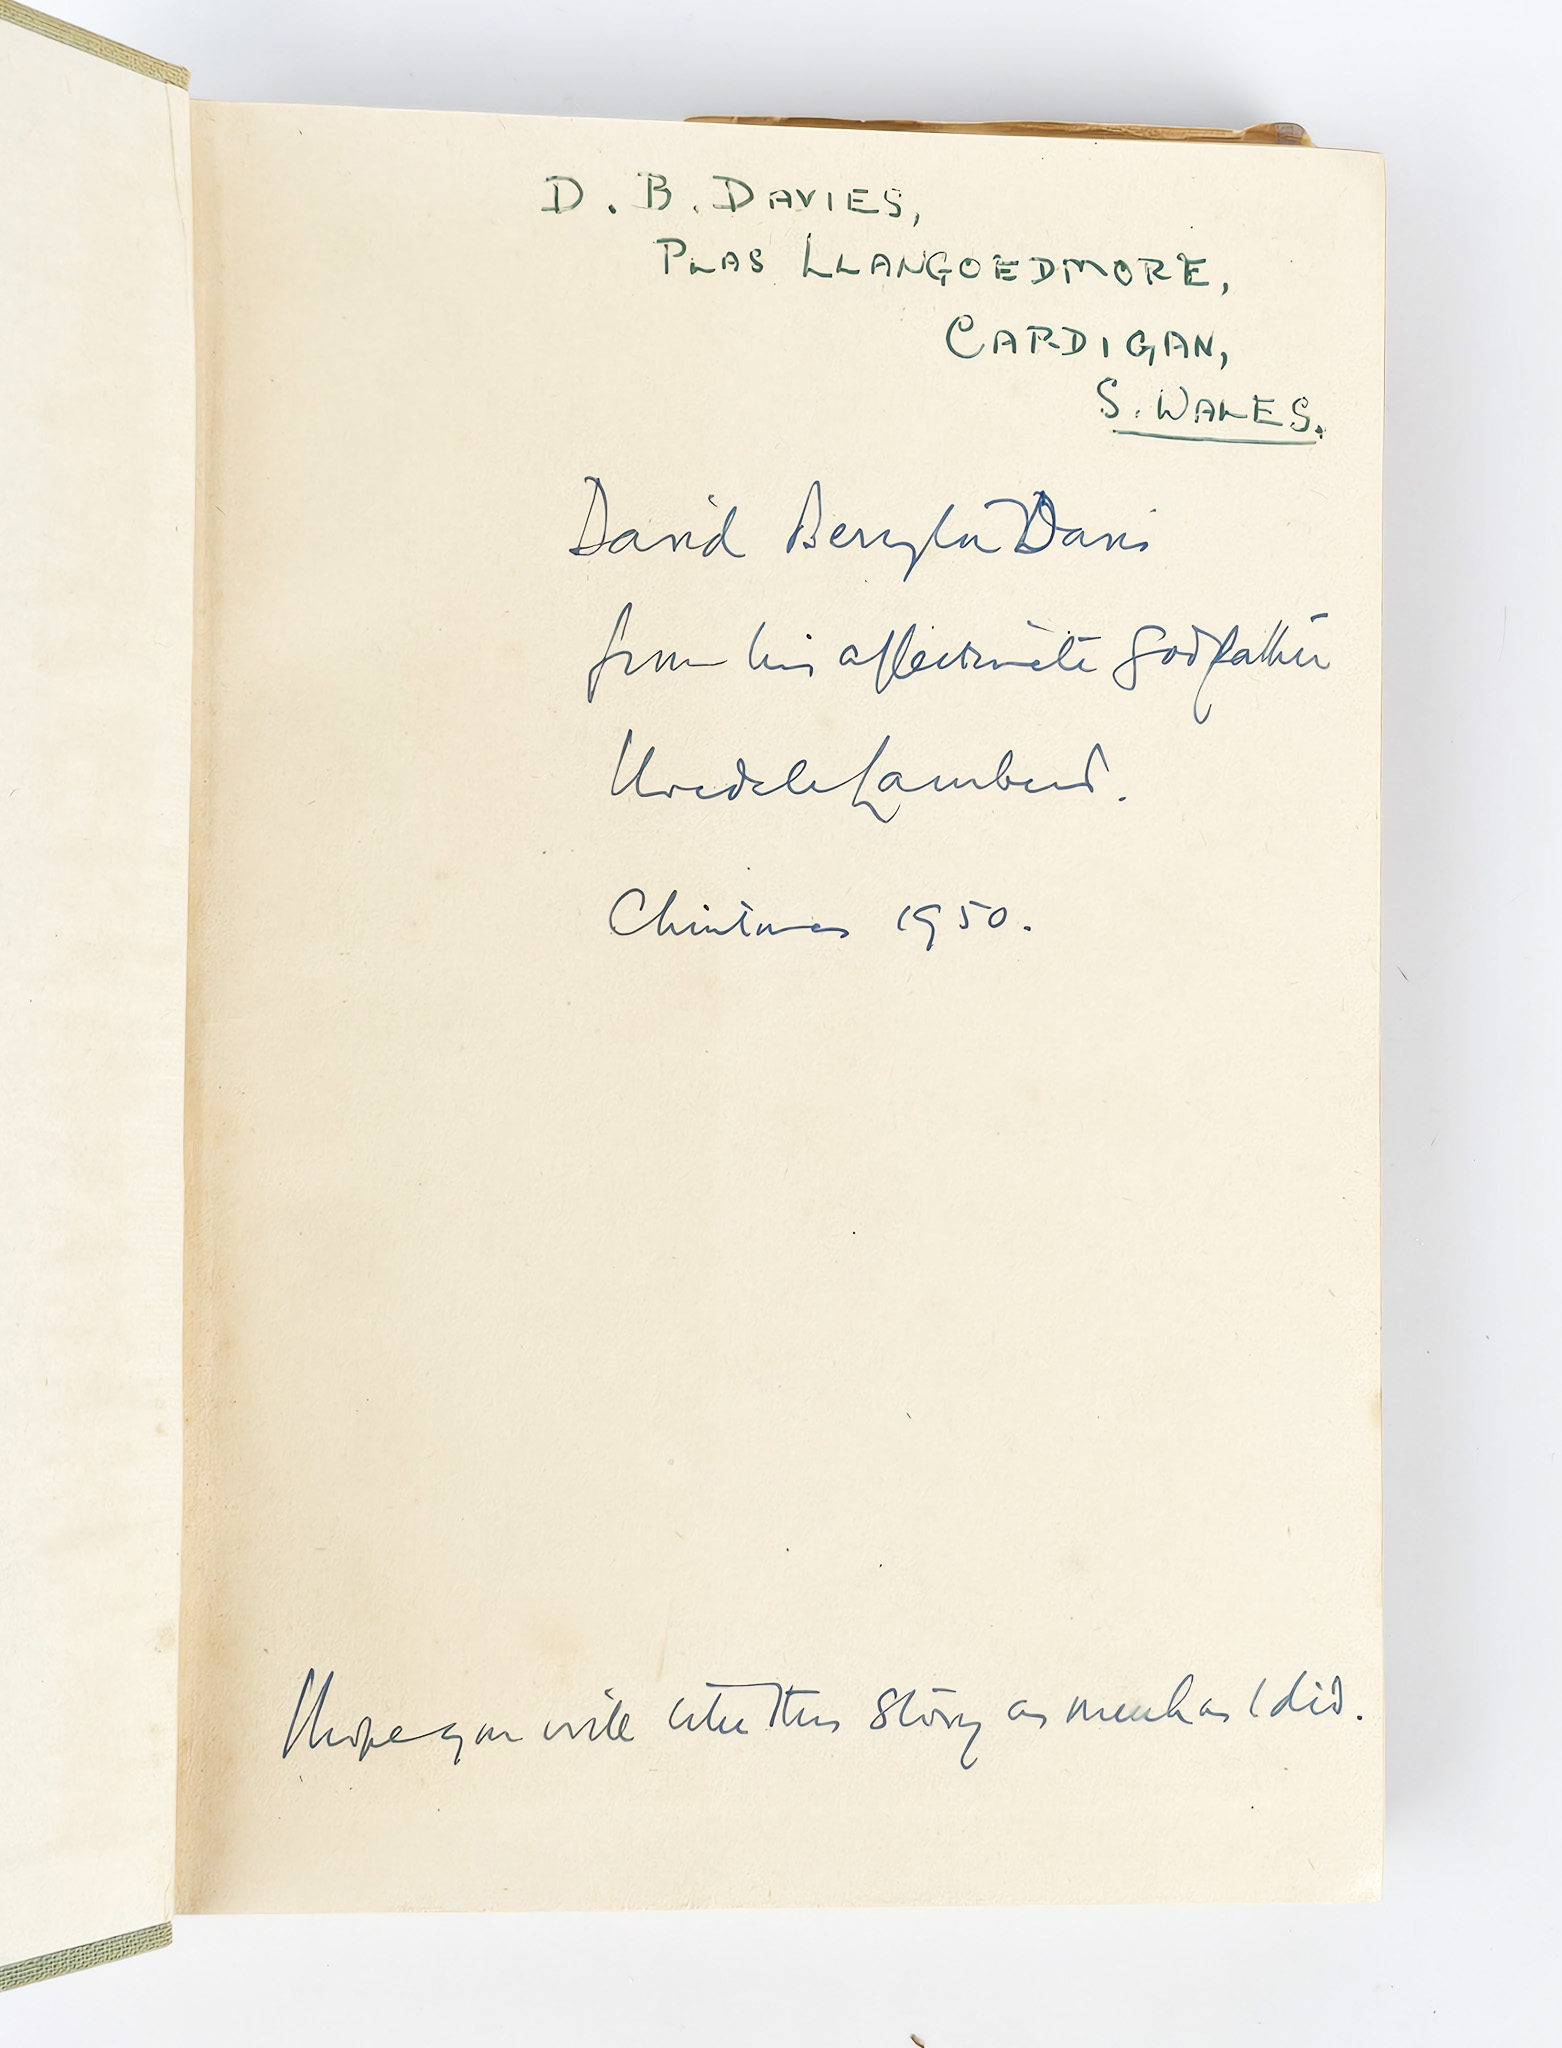 D. B. DAVIES,
PLAS LLANGOEDMORE,
CARDIGAN,
S. WALES.
David Davies
from his affectionate Godfather
Uvedale Lambert.
Christmas 1950.
I hope you will like this story as much as I did.